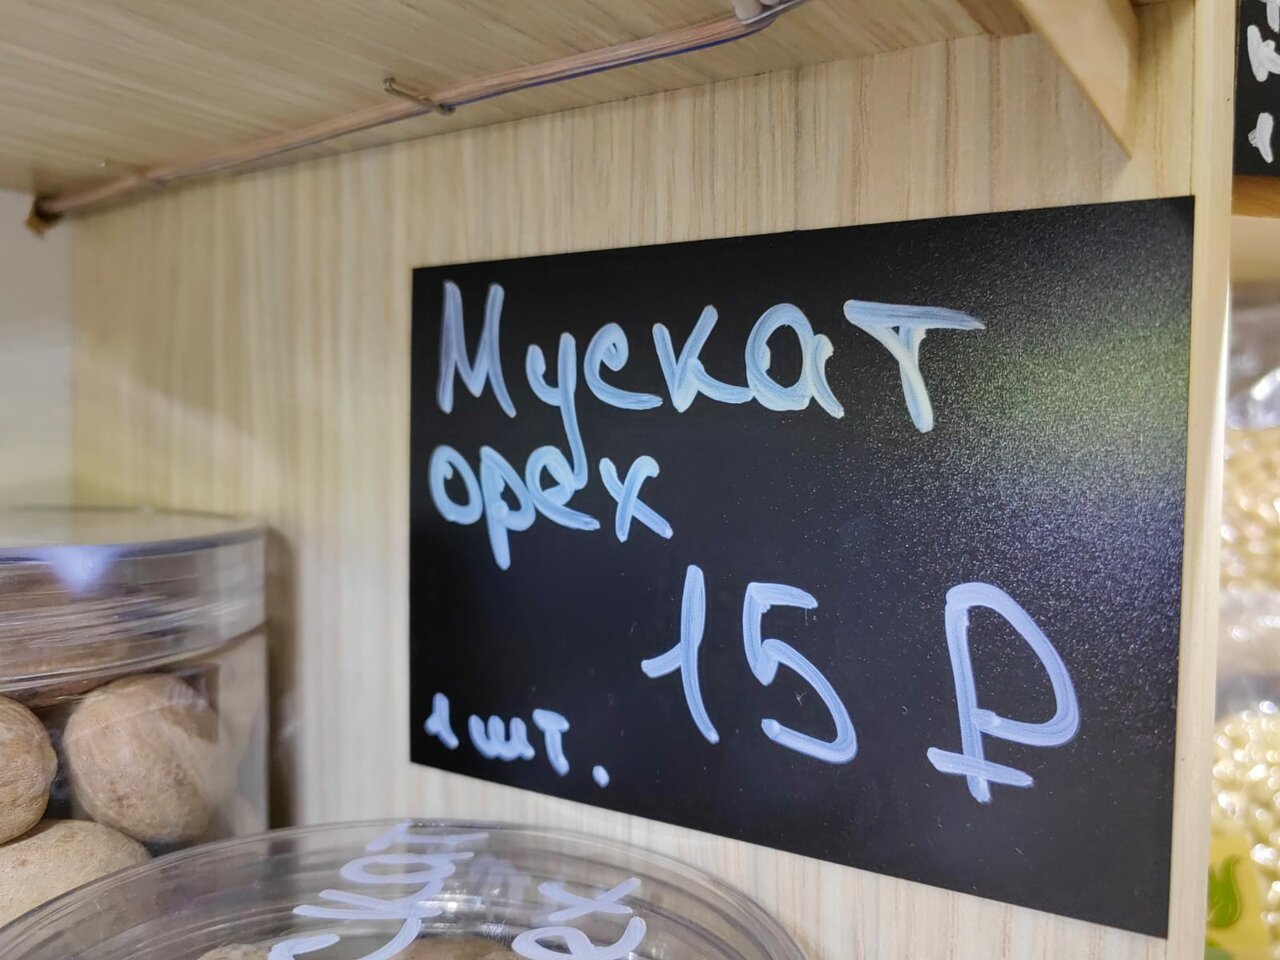 Мускат
орех
15 ₽
1 шт.